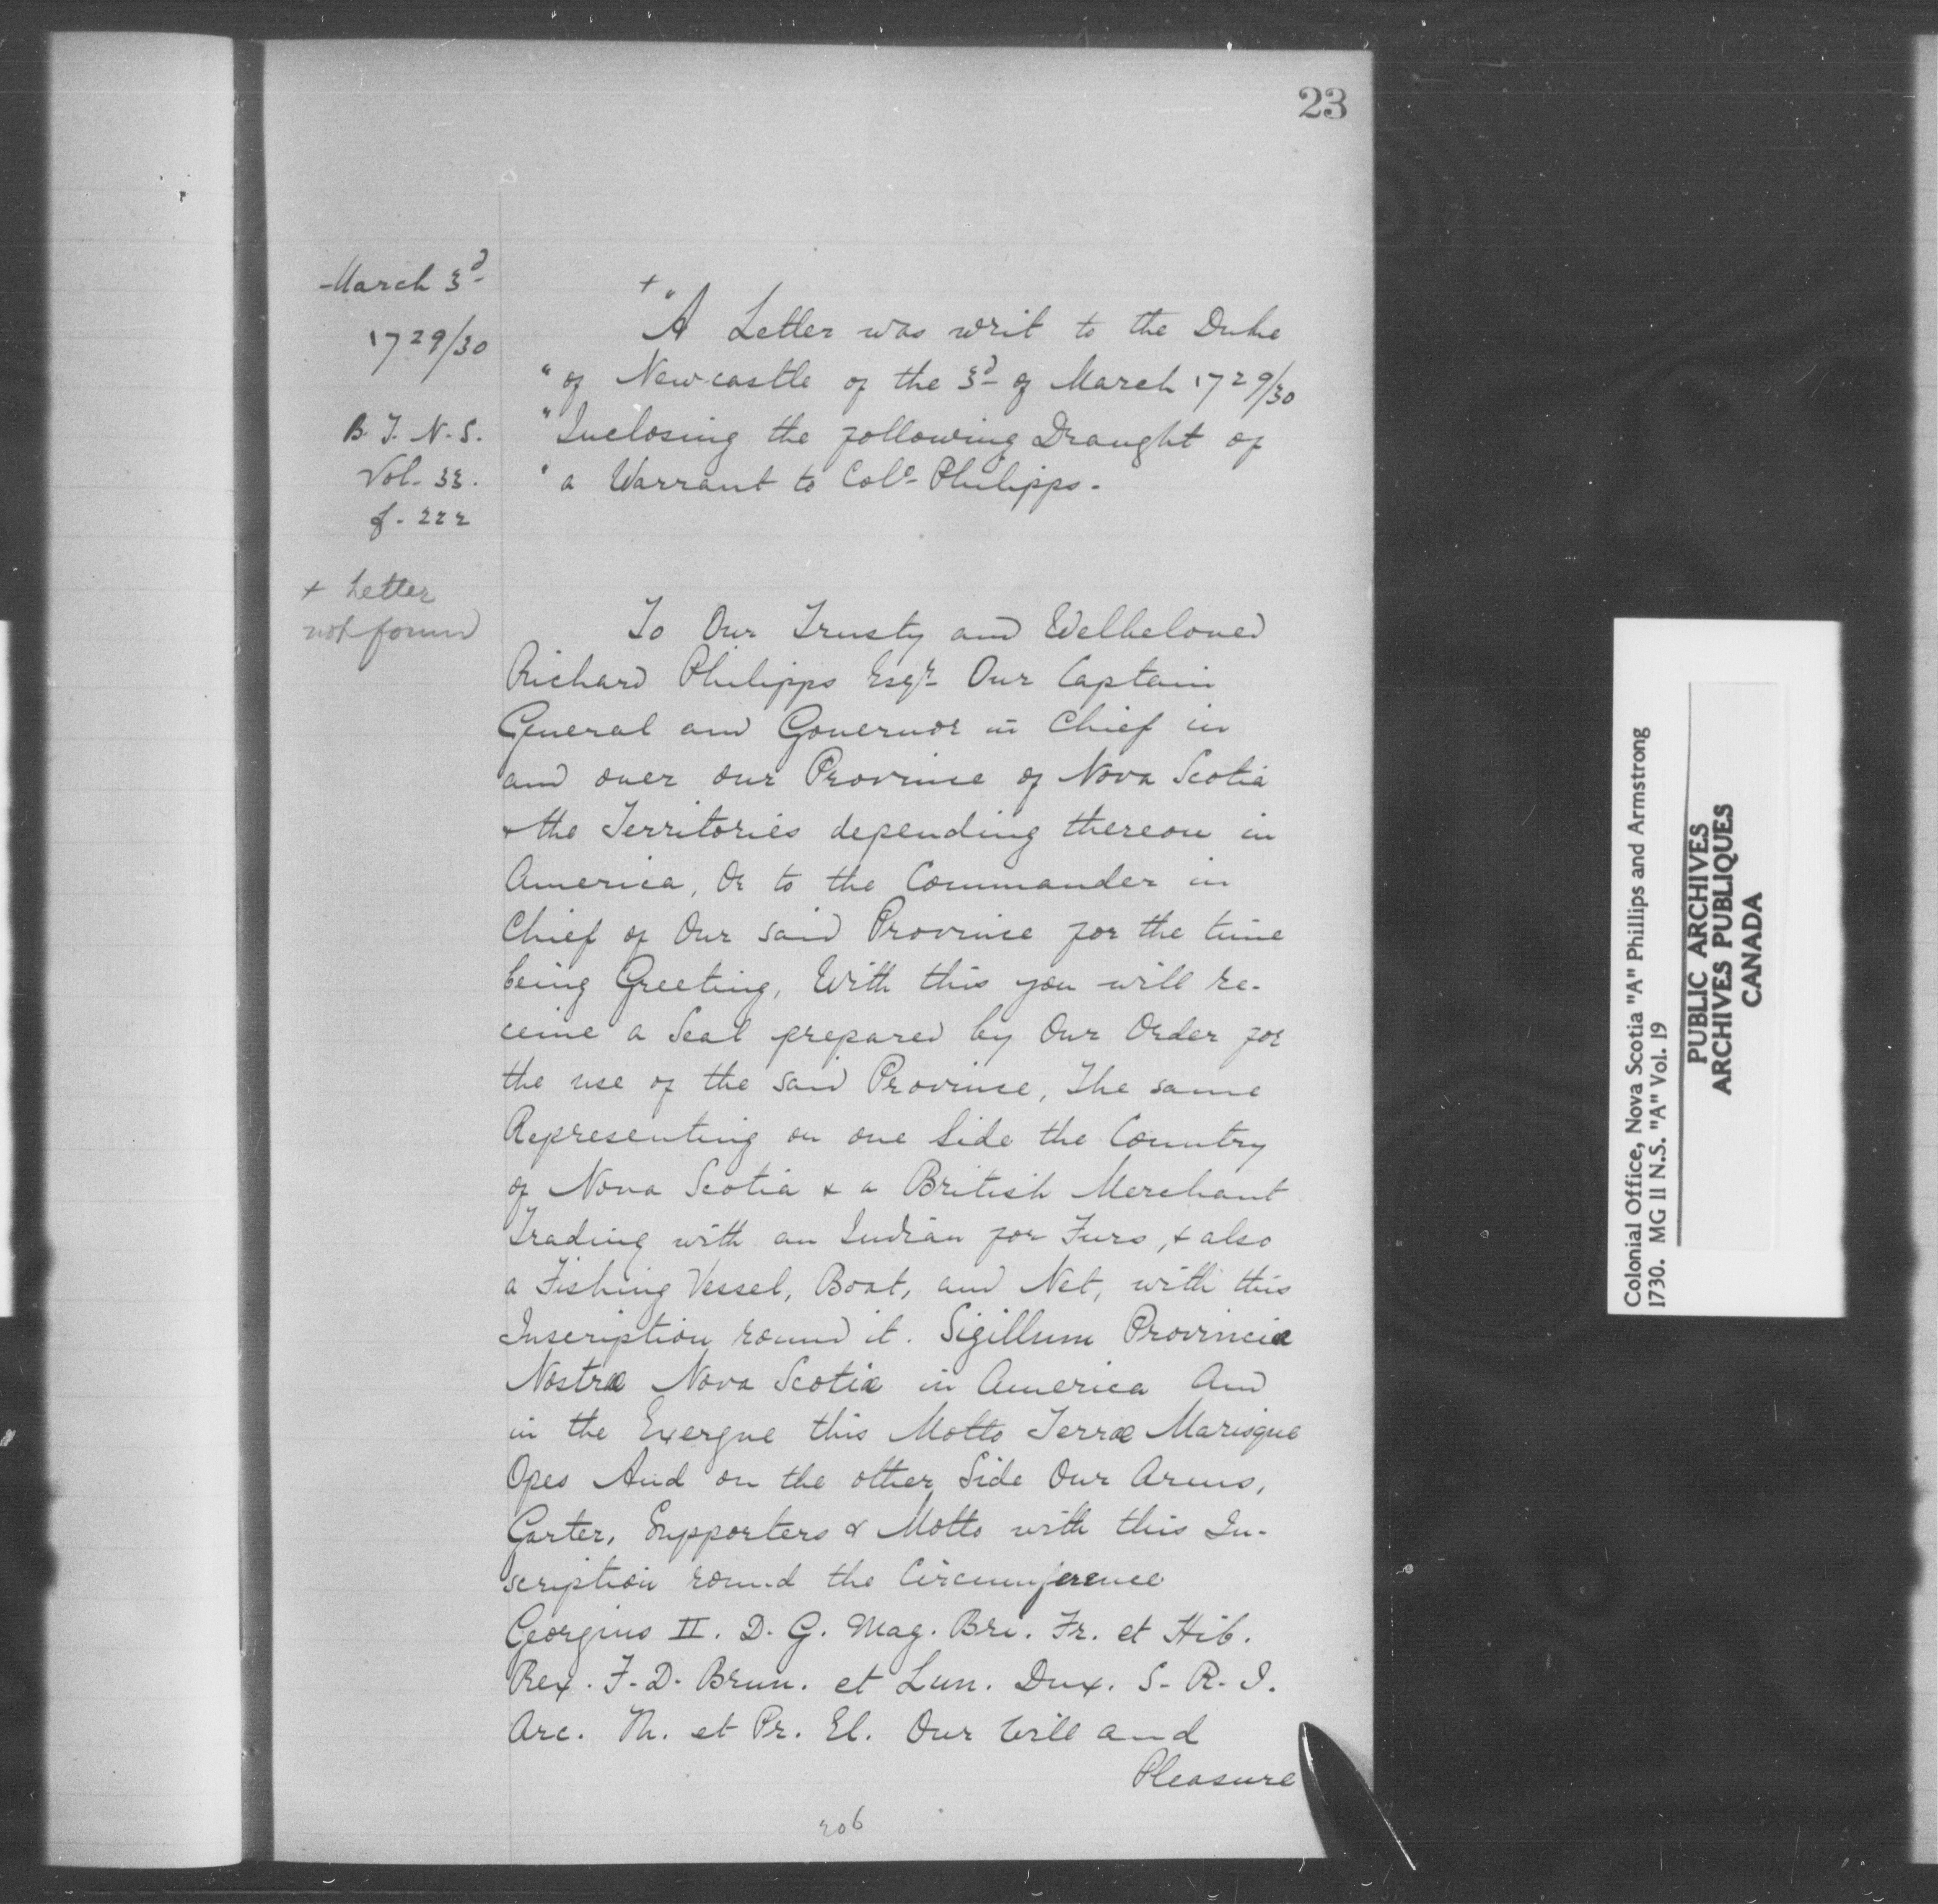 23
March 3d
1729/30
B. T. N. S.
Vol. 33.
f. 222
+ Letter
not found
+ "A Letter was writ to the Duke
" of Newcastle of the 3d of March 1729/30
" Inclosing the following Draught of
" a Warrant to Colo Philipps.
To Our Trusty and Welbeloved
Richard Philipps Esqr Our Captain
General and Governor in Chief in
and over our Province of Nova Scotia
& the Territories depending thereon in
America, Or to the Commander in
Chief of Our said Province for the time
being Greeting, With this you will re-
ceive a Seal prepared by Our Order for
the use of the said Province, The same
Representing on one Side the Country
of Nova Scotia & a British Merchant
Trading with an Indian for Furs, & also
a Fishing Vessel, Boat, and Net, with this
Inscription round it. Sigillum Provinciæ
Nostræ Nova Scotiæ in America And
in the Exergue this Motto Terræ Marisque
Opes And on the other Side Our Arms,
Garter, Supporters & Motto with this In-
scription round the Circumference
Georgius II. D. G. Mag. Bri. Fr. et Hib.
Rex. F. D. Brun. et Lun. Dux. S. R. I.
Arc. Th. et Pr. El. Our Will and
Pleasure
206
Colonial Office, Nova Scotia "A" Phillips and Armstrong
1730. MG 11 N.S. "A" Vol. 19
PUBLIC ARCHIVES
ARCHIVES PUBLIQUES
CANADA